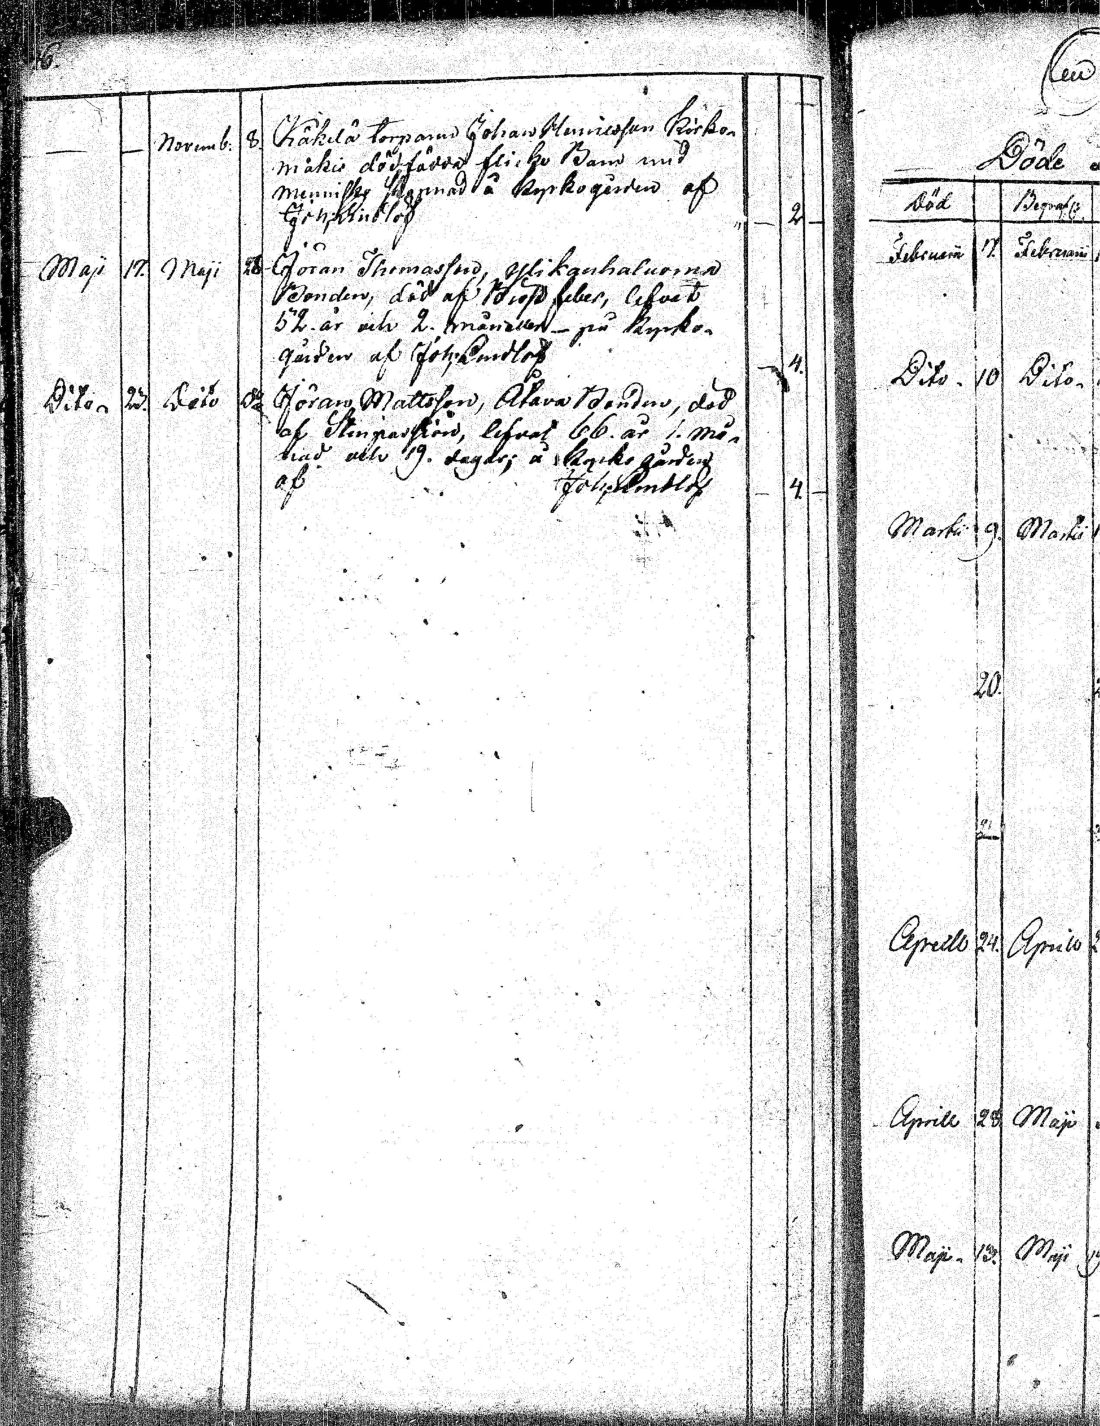 6.
Novemb. 8. Käkelä torparen Johan Henricsson Kirko-
mäkis dödfödda flicke Barn
Menniskj å Kyrkogården af
Joh. Lindlöf 2
Maji 17. Maji 28 Jöran Thomasson, Ylikauhaluoma
Bonden, död af feber, lefvat
52. år och 2. månader på Kyrko-
gården af Joh. Lindlöf 4.
Dito 23. Dito Jöran Mattsson, Atava Bonden, död
af Stenpassion, lefvat 66. år 1. må-
nad och 19. dagar; å Kyrko gården
af Joh. Lindlöf 4.
Döde
Död Begrafs.
Februarii 7. Februarii
Dito 10 Dito
Martii 9. Martii
20.
Aprill 24. Aprill
Aprill 28 Maji
Maji 13. Maji